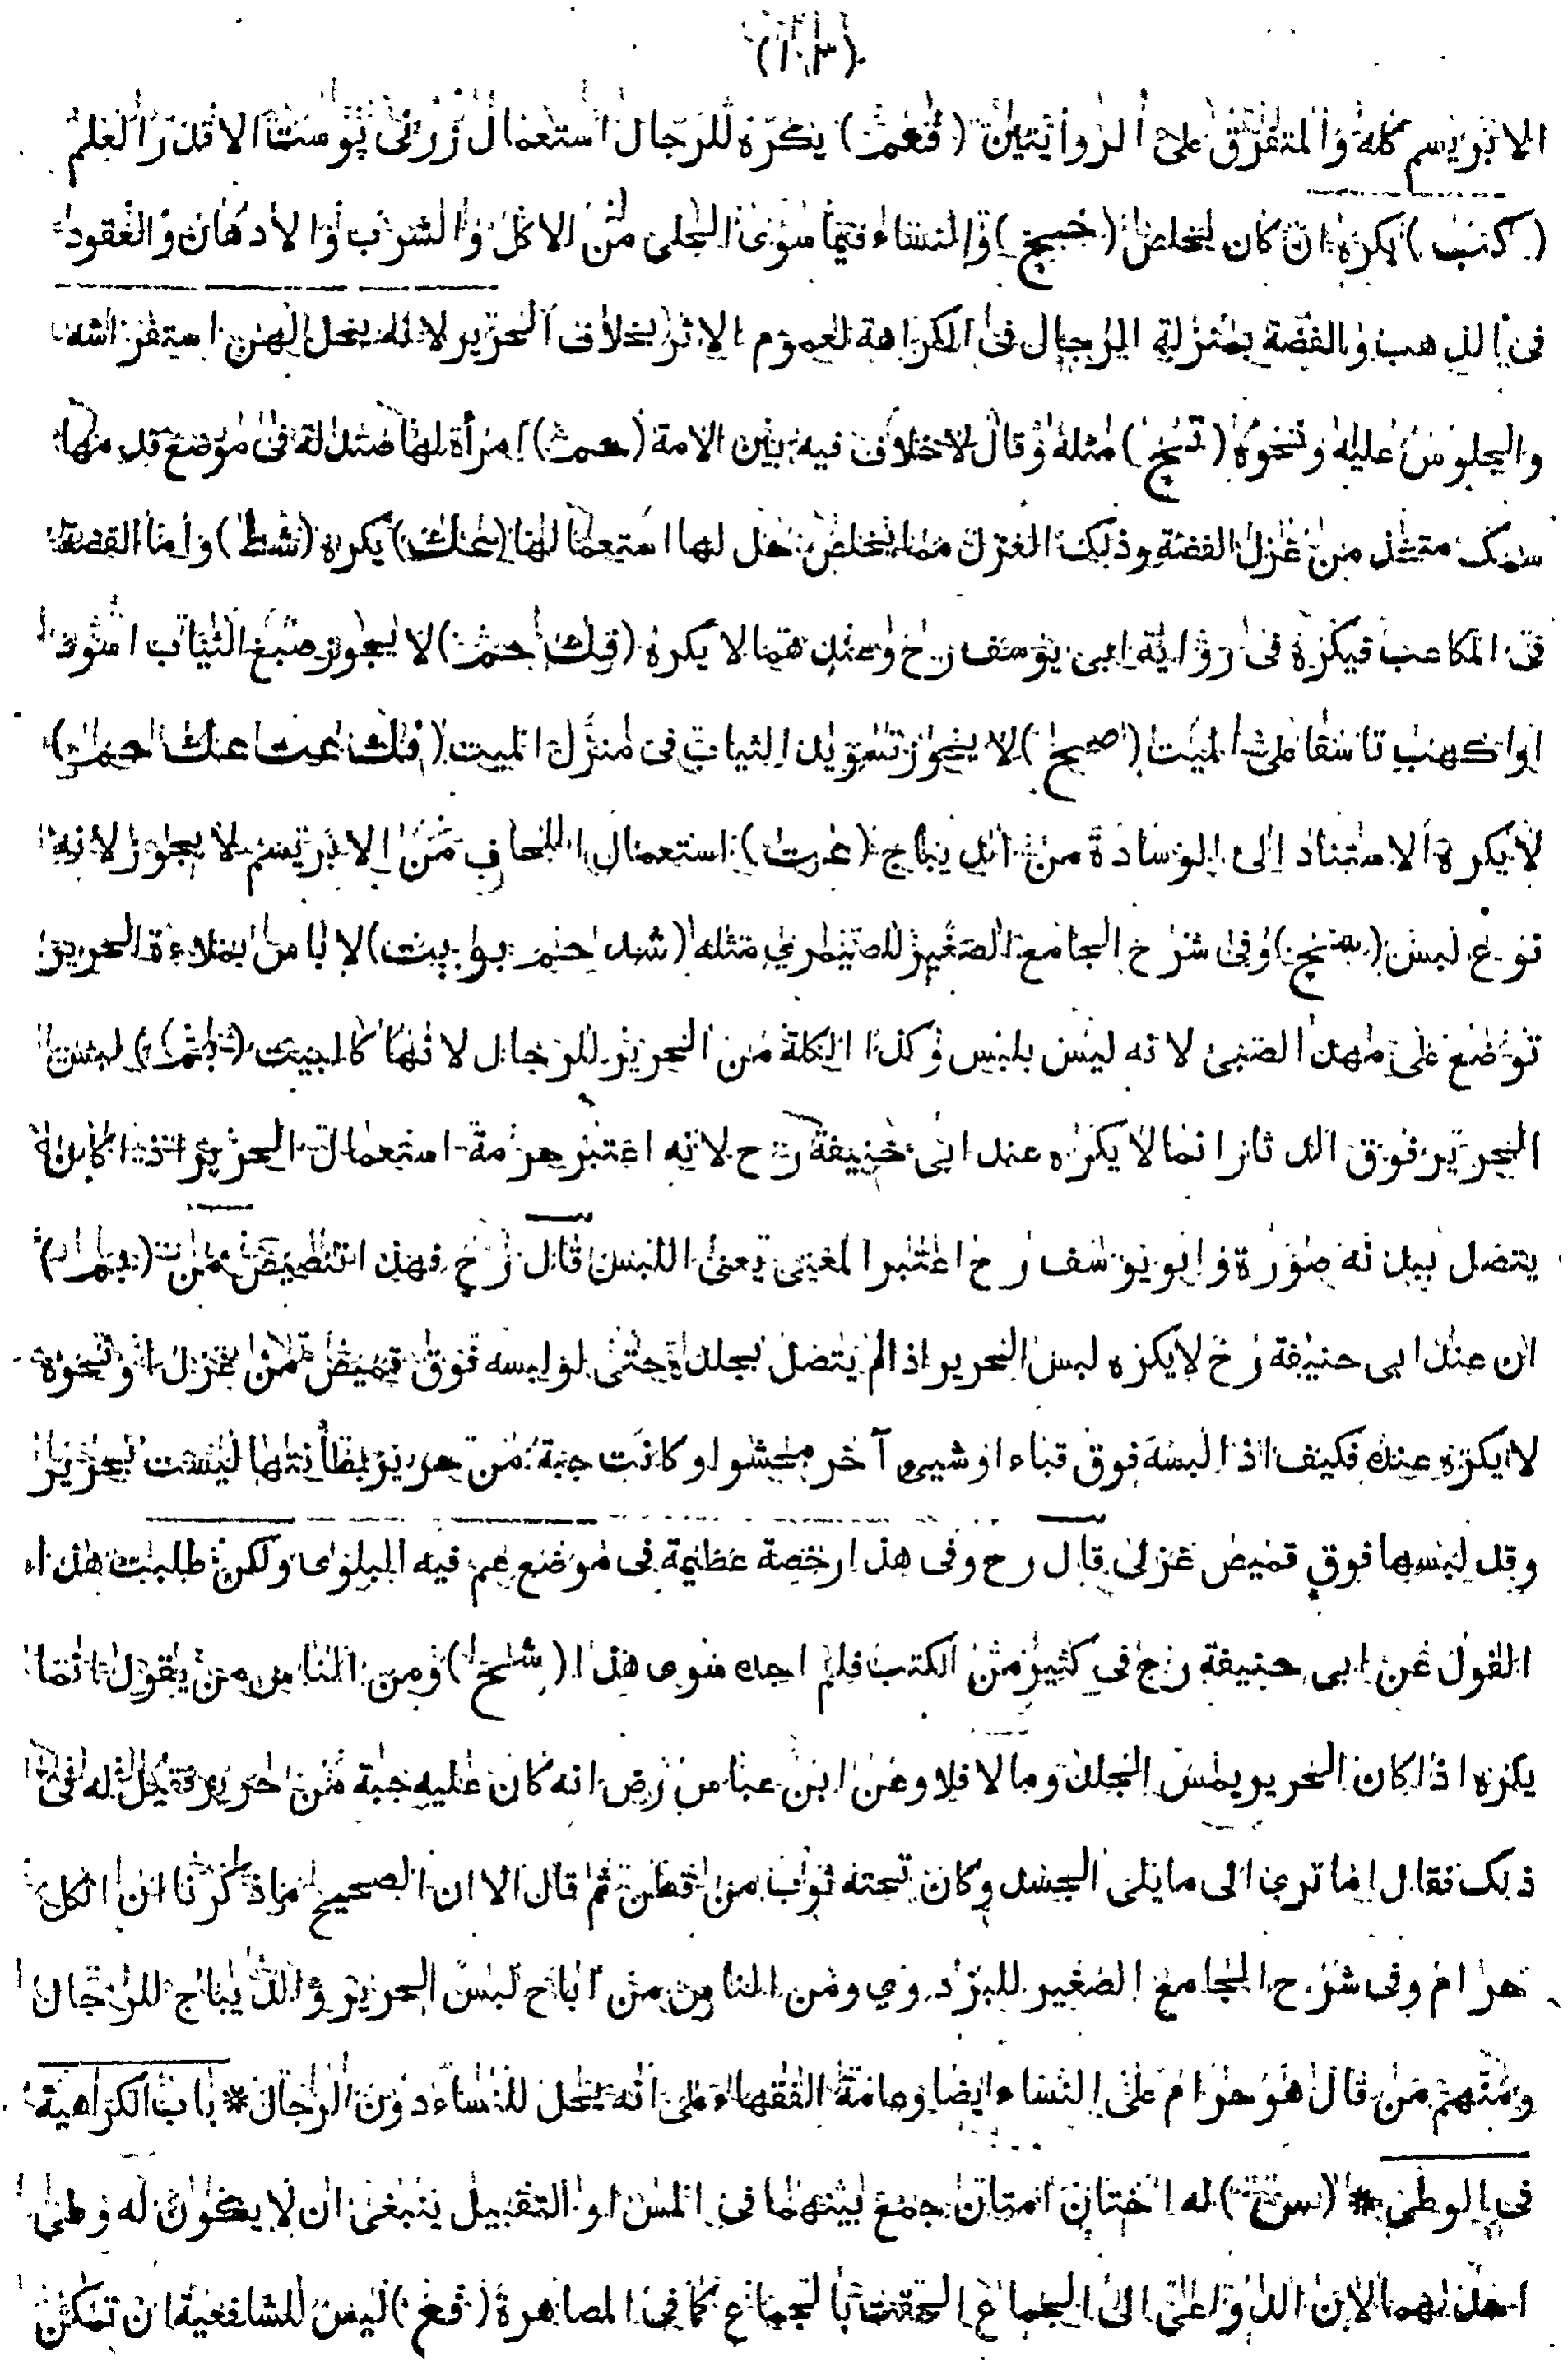 (١٠٣)
الابريسم كله والمتفرق على الروايتين (فعم) يكره للرجال استعمال زرنى پوست الا قدر العلم
(كنب) يكره ان كان يخلص (خبج) والنساء فيما سوى الحلى من الاكل والشرب والادهان والقعود
فى الذهب والفضة بمنزلة الرجال فى الكراهة لعموم الاثر بخلاف الحرير لانه يحل لهن استفراشه
والجلوس عليه ونحوه مثله وقال لا خلاف فيه بين الامة (حمث) امرأة لها صندلة فى موضع قدمها
سمك متخذ من غزل الفضة وذلك الغزل مما يخلص حل لها استعمالها (عك) يكره (شط) واما الفضة
فى المكاعب فيكره فى رواية ابى يوسف رح وعندهما لا يكره لا يجوز صبغ الثياب اسود
او اكهب تاسفا على الميت (صبح) لا يجوز تسويد الثياب فى منزل الميت (فك عت عك حمث)
لا يكره الاستناد الى الوسادة من الديباج (عت) استعمال اللحاف من الابريسم لا يجوز لانه
نوع لبس وفى شرح الجامع الصغير للصيمري مثله لا باس بملاءة الحرير
توضع على مهد الصبى لانه ليس بلبس وكذا الكلة من الحرير للرجال لانها كالبيت لبس
الحرير فوق الدثار انما لا يكره عند ابى حنيفة رح لانه اعتبر حرمة استعمال الحرير اذا كان
يتصل ببدنه صورة وابو يوسف رح اعتبر المعنى يعنى اللبس قال رح فهذا تنصيص من
ان عند ابى حنيفة رح لا يكره لبس الحرير اذا لم يتصل بجلده حتى لو لبسه فوق قميص من غزل او نحوه
لا يكره عنده فكيف اذا لبسه فوق قباء او شيء آخر محشو او كانت جبة من حرير بطانتها ليست بحرير
وقد لبسها فوق قميص غزلى قال رح وفى هذا رخصة عظيمة فى موضع عم فيه البلوى ولكن طلبت هذا
القول عن ابى حنيفة رح فى كثير من الكتب فلم اجده سوى هذا (شخ) ومن الناس من يقول انما
يكره اذا كان الحرير يمس الجلد وما لا فلا وعن ابن عباس رض انه كان عليه جبة من حرير فقيل له فى
ذلك فقال اما ترى الى ما يلى الجسد وكان تحته ثوب من قطن ثم قال الا ان الصحيح ما ذكرنا ان الكل
حرام وفى شرح الجامع الصغير للبزدوي ومن الناس من اباح لبس الحرير والديباج للرجال
ومنهم من قال هو حرام على النساء ايضا وعامة الفقهاء على انه يحل للنساء دون الرجال * باب الكراهية
فى الوطى * له اختان امتان جمع بينهما فى المس او التقبيل ينبغى ان لا يكون له وطى
احدٰهما لان الدواعى الى الجماع التحقت بالجماع كما فى المصاهرة (فع) ليس للشافعية ان تمكن